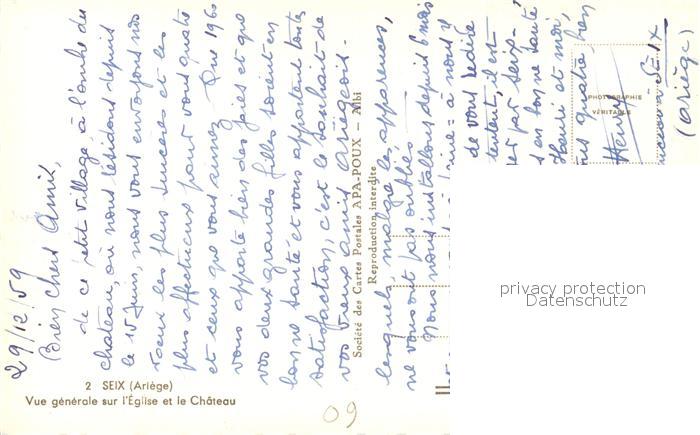 29/12/59
Bien chers Amis,
de ce petit village, à l'ombre des
chateau, où nous résidons depuis
le 15 Juin, nous vous envoyons nos
voeux les plus sincères et les
plus affectueux pour vous quatre
et ceux que vous aimez. Que 1960
vous apporte bien des joies et que
vos deux grandes filles soient en
bonne santé et vous apportent toutes
satisfaction, c'est le souhait de
vos vieux amis ariégeois.
Société des Cartes Postales APA-POUX – Albi
Reproduction interdite
lesquels, malgré les apparences,
ne vous ont pas oubliés.
Nous nous installons, depuis 6 mois
à nous y
de vous redire
content, il est
par seux-
en bonne santé
Henri et moi,
quatre, bien
PHOTOGRAPHIE
VÉRITABLE
Henry
à Seix
(Ariège)
privacy protection
Datenschutz
2 SEIX (Ariège)
Vue générale sur l'Église et le Château
09